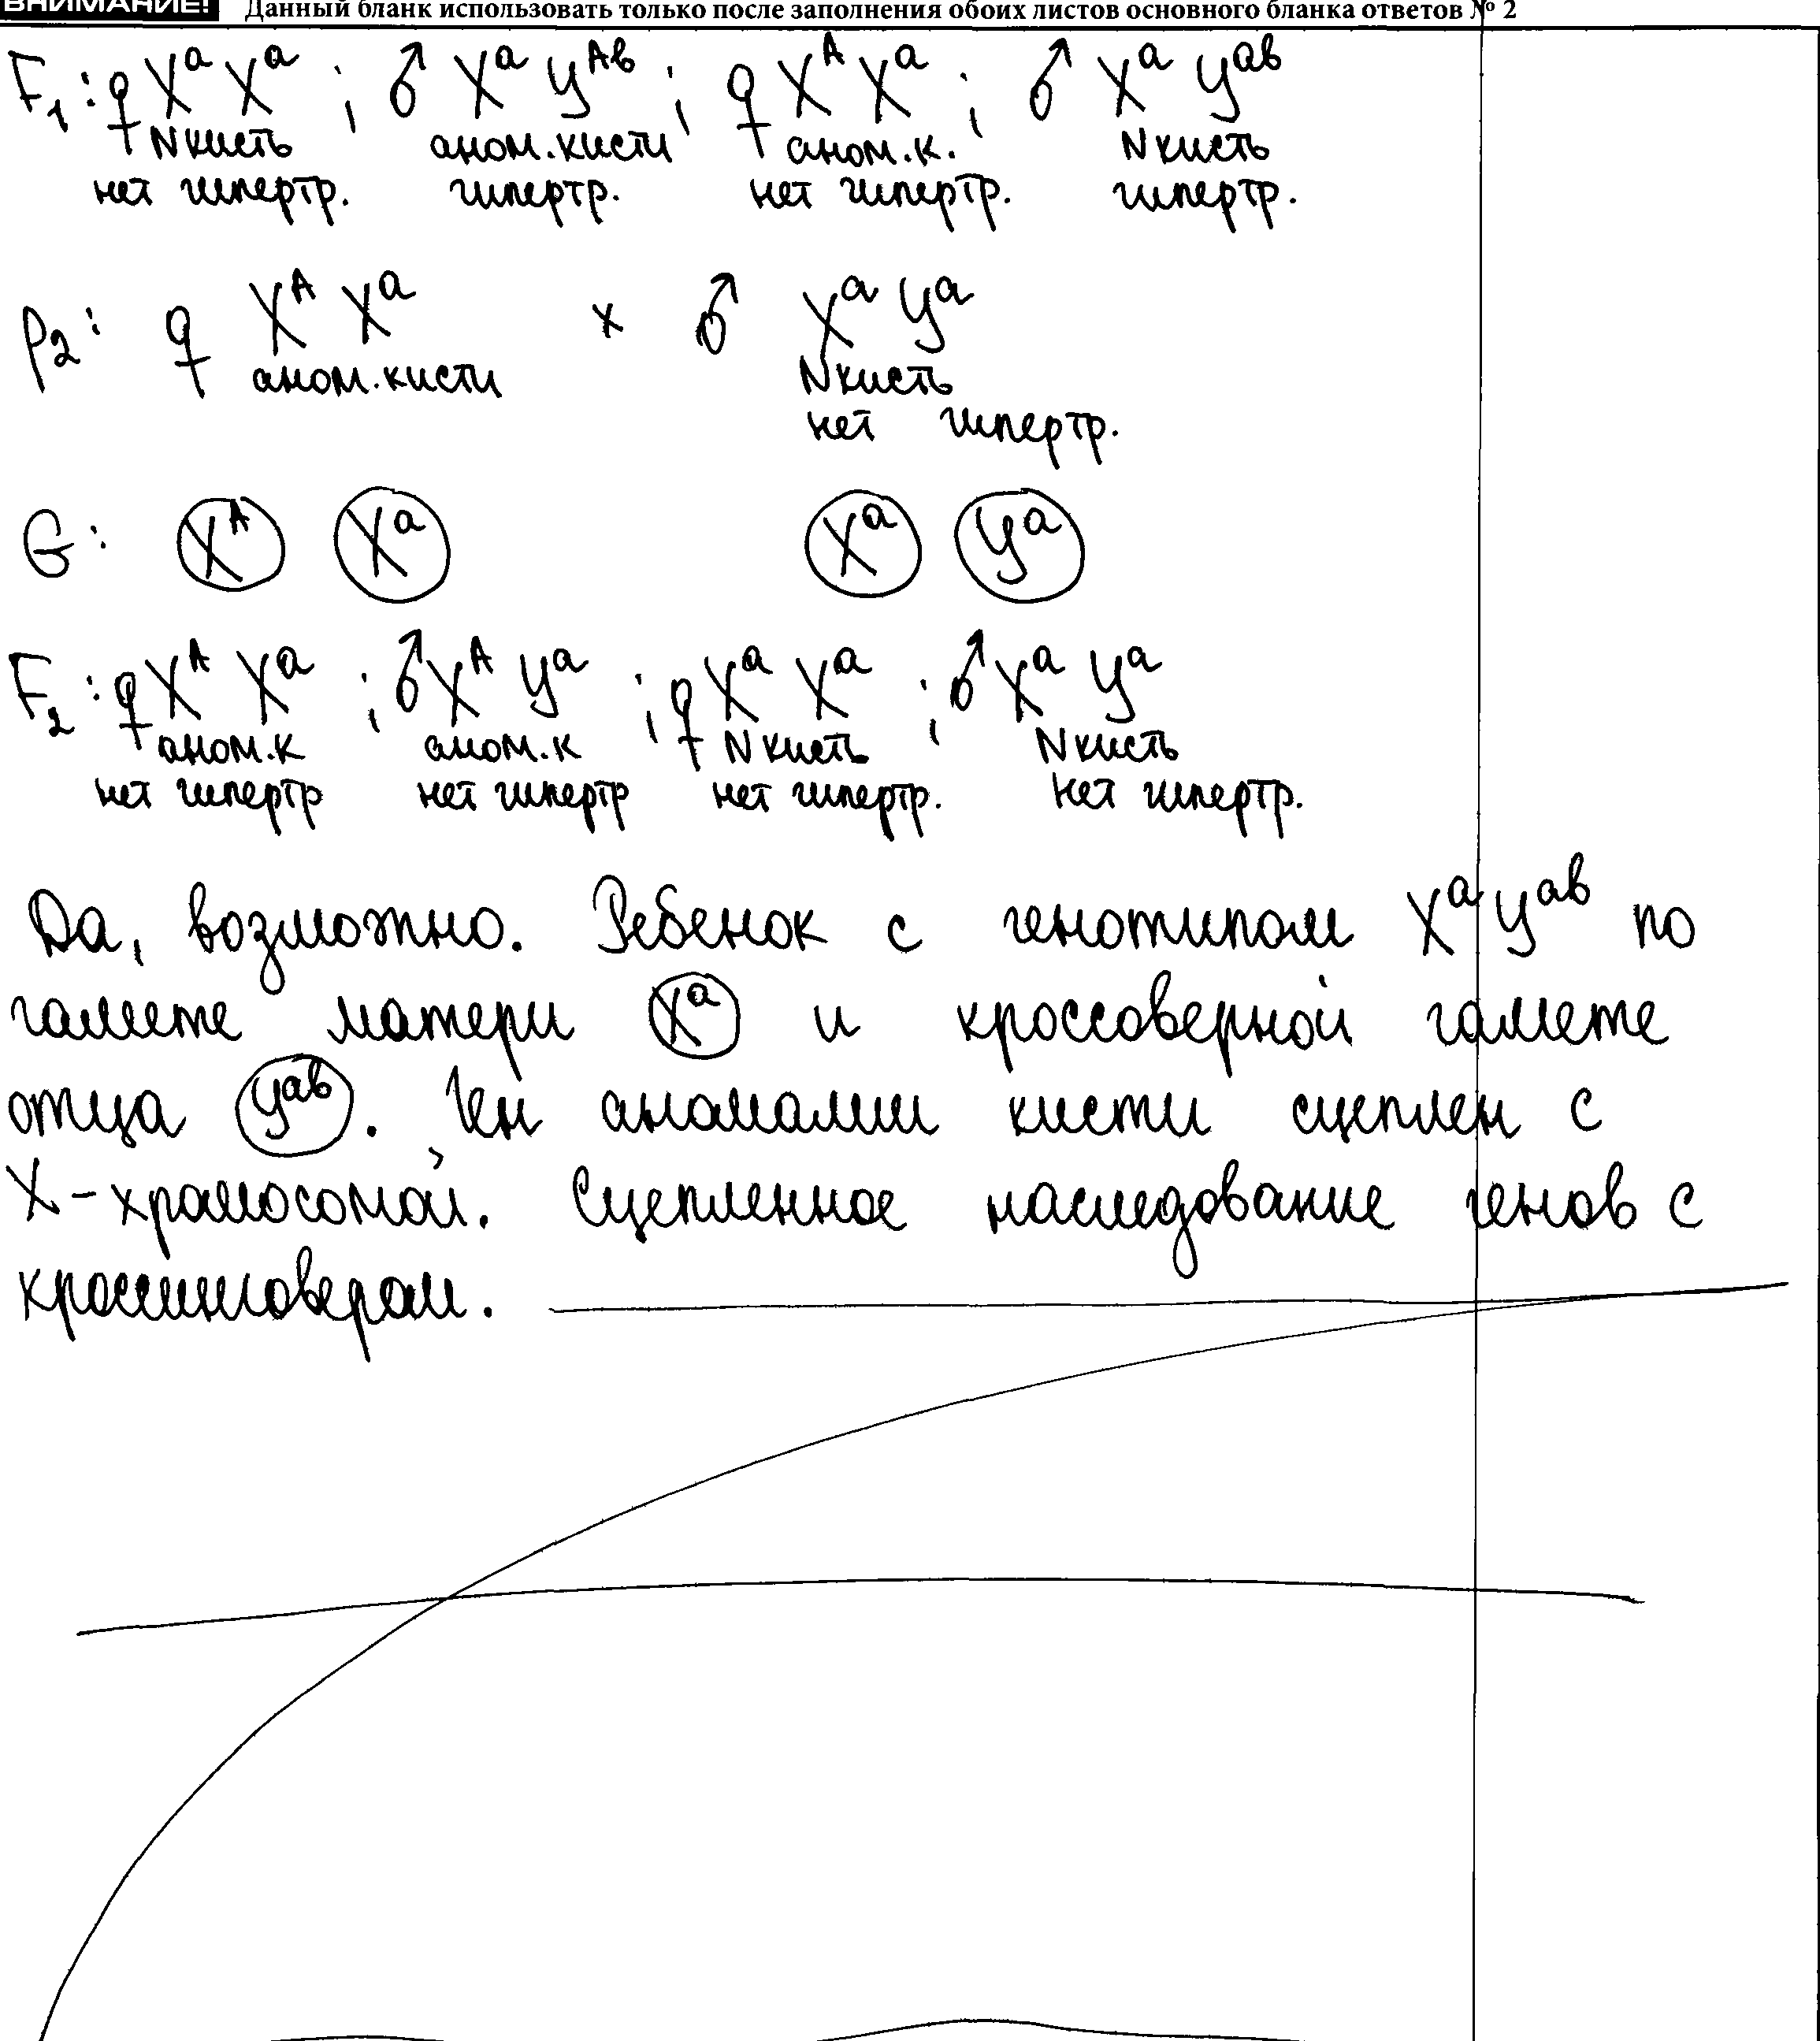 ВНИМАНИЕ! Данный бланк использовать только после заполнения обоих листов основного бланка ответов № 2
F₁: ♀ Xᵃ Xᵃ ; ♂ Xᵃ Yᴬᵇ ; ♀ Xᴬ Xᵃ ; ♂ Xᵃ Yᵃᵇ
N кисть аном.кисти аном.к. N кисть
нет гипертр. гипертр. нет гипертр. гипертр.
P₂: ♀ Xᴬ Xᵃ × ♂ Xᵃ Yᵃ
аном.кисти N кисть
нет гипертр.
G: Xᴬ Xᵃ Xᵃ Yᵃ
F₂: ♀ Xᴬ Xᵃ ; ♂ Xᴬ Yᵃ ; ♀ Xᵃ Xᵃ ; ♂ Xᵃ Yᵃ
аном.к аном.к N кисть N кисть
нет гипертр нет гипертр нет гипертр. нет гипертр.
Да, возможно. Ребенок с генотипом Xᵃ Yᵃᵇ по
гамете матери Xᵃ и кроссоверной гамете
отца Yᵃᵇ. Ген аномалии кисти сцеплен с
X-хромосомой. Сцепленное наследование генов с
кроссинговером.